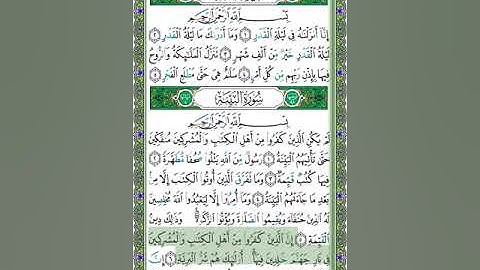 بِسْمِ اللَّهِ الرَّحْمَٰنِ الرَّحِيمِ
إِنَّا أَنْزَلْنَاهُ فِي لَيْلَةِ الْقَدْرِ ۝١ وَمَا أَدْرَاكَ مَا لَيْلَةُ الْقَدْرِ ۝٢
لَيْلَةُ الْقَدْرِ خَيْرٌ مِنْ أَلْفِ شَهْرٍ ۝٣ تَنَزَّلُ الْمَلَائِكَةُ وَالرُّوحُ
فِيهَا بِإِذْنِ رَبِّهِمْ مِنْ كُلِّ أَمْرٍ ۝٤ سَلَامٌ هِيَ حَتَّىٰ مَطْلَعِ الْفَجْرِ ۝٥
سُورَةُ الْبَيِّنَةِ
بِسْمِ اللَّهِ الرَّحْمَٰنِ الرَّحِيمِ
لَمْ يَكُنِ الَّذِينَ كَفَرُوا مِنْ أَهْلِ الْكِتَابِ وَالْمُشْرِكِينَ مُنْفَكِّينَ
حَتَّىٰ تَأْتِيَهُمُ الْبَيِّنَةُ ۝١ رَسُولٌ مِنَ اللَّهِ يَتْلُو صُحُفًا مُطَهَّرَةً ۝٢
فِيهَا كُتُبٌ قَيِّمَةٌ ۝٣ وَمَا تَفَرَّقَ الَّذِينَ أُوتُوا الْكِتَابَ إِلَّا مِنْ
بَعْدِ مَا جَاءَتْهُمُ الْبَيِّنَةُ ۝٤ وَمَا أُمِرُوا إِلَّا لِيَعْبُدُوا اللَّهَ مُخْلِصِينَ
لَهُ الدِّينَ حُنَفَاءَ وَيُقِيمُوا الصَّلَاةَ وَيُؤْتُوا الزَّكَاةَ ۚ وَذَٰلِكَ دِينُ
الْقَيِّمَةِ ۝٥ إِنَّ الَّذِينَ كَفَرُوا مِنْ أَهْلِ الْكِتَابِ وَالْمُشْرِكِينَ
فِي نَارِ جَهَنَّمَ خَالِدِينَ فِيهَا ۚ أُولَٰئِكَ هُمْ شَرُّ الْبَرِيَّةِ ۝٦ إِنَّ